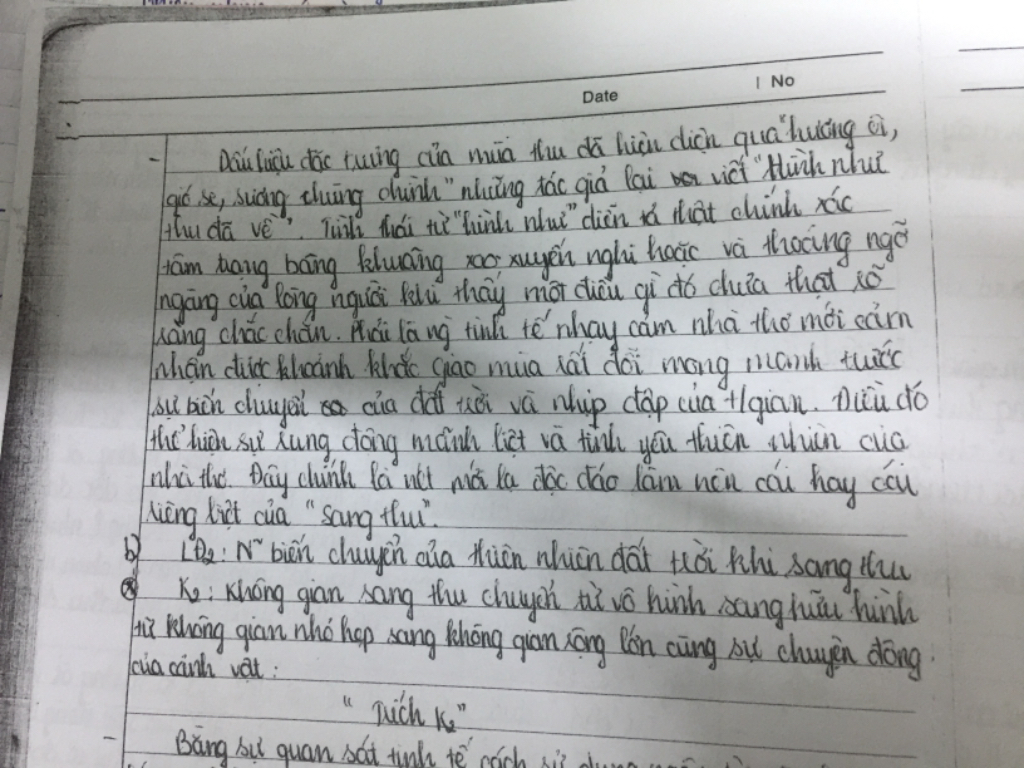 Date | No
- Dấu hiệu đặc trưng của mùa thu đã hiện diện qua "hương ổi,
gió se, sương chùng chình" nhưng tác giả lại viết "Hình như
thu đã về". Tình thái từ "hình như" diễn tả thật chính xác
tâm trạng bâng khuâng xao xuyến nghi hoặc và thoáng ngỡ
ngàng của lòng người khi thấy một điều gì đó chưa thật rõ
ràng chắc chắn. Phải là ng tinh tế nhạy cảm nhà thơ mới cảm
nhận được khoảnh khắc giao mùa rất đỗi mong manh trước
sự biến chuyển của đất trời và nhịp đập của t/gian. Điều đó
thể hiện sự rung động mãnh liệt và tình yêu thiên nhiên của
nhà thơ. Đây chính là nét mới lạ độc đáo làm nên cái hay cái
riêng biệt của "Sang thu".
b) LĐ2: N~ biến chuyển của thiên nhiên đất trời khi sang thu
K2: Không gian sang thu chuyển từ vô hình sang hữu hình
từ không gian nhỏ hẹp sang không gian rộng lớn cùng sự chuyển động
của cảnh vật:
"Trích K2"
- Bằng sự quan sát tinh tế cách sử dụng